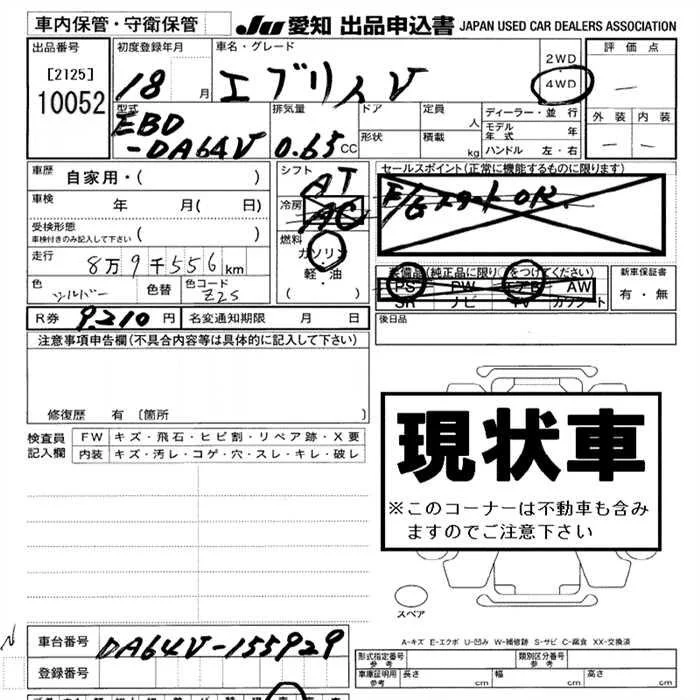 車内保管・守衛保管 JU 愛知 出品申込書 JAPAN USED CAR DEALERS ASSOCIATION
出品番号 初度登録年月 車名・グレード 2WD 評価点
[2125] 18 月 エブリィV 4WD —
10052 型式 排気量 ドア 定員 人 ディーラー・並行 外装 内装
EBD 0.65 CC 形状 積載 kg モデル年式 年 — —
-DA64V ハンドル 左・右
車歴 自家用・( ) シフト AT セールスポイント(正常に機能するものに限ります)
車検 年 月( 日) 冷房 AC F/GスタートOK.
受検形態 ( ) 燃料
車検付きのみ記入して下さい ガソリン
走行 8万9千556km 軽・油 装備品(純正品に限り○をつけてください) 新車保証書
色 シルバー 色替 色コード Z2S ( ) PS PW エアB AW 有・無
SR ナビ TV カワシート
R券 9210 円 名変通知期限 月 日 後日品
注意事項申告欄(不具合内容等は具体的に記入して下さい)
修復歴 有 〔箇所
現状車
※このコーナーは不動車も含み
ますのでご注意下さい
検査員 FW キズ・飛石・ヒビ割・リペア跡・X要
記入欄 内装 キズ・汚レ・コゲ・穴・スレ・キレ・破レ
スペア
A-キズ E-エクボ U-凹み W-補修跡 S-サビ C-腐食 XX-交換済
車台番号 DA64V-155929 形式指定番号 参考 類別区分番号 参考
登録番号 車庫証明用 参考 長さ cm 幅 cm 高さ cm